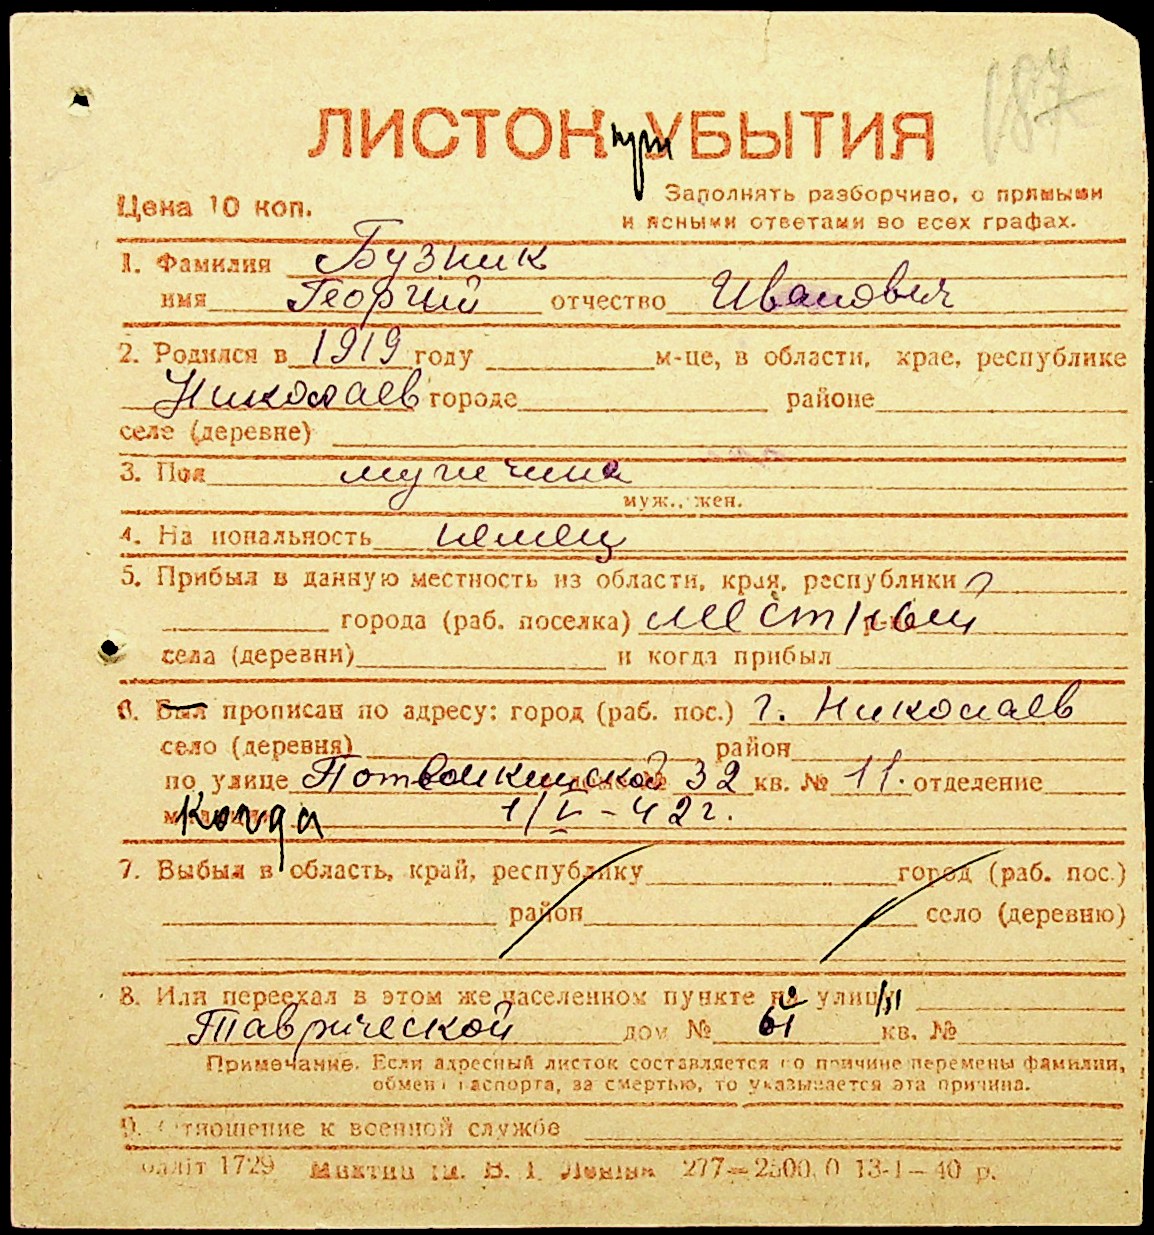 187
ЛИСТОК УБЫТИЯ
при
Цена 10 коп.
Заполнять разборчиво, с прямыми
и ясными ответами во всех графах.
1. Фамилия Бузник
имя Георгий отчество Иванович
2. Родился в 1919 году м-це, в области, крае, республике
Николаев городе районе
селе (деревне)
3. Пол мужчина
муж., жен.
4. На иональность немец
5. Прибыл в данную местность из области, края, республики
города (раб. поселка) местный
села (деревни) и когда прибыл
6. Был прописан по адресу: город (раб. пос.) г. Николаев
село (деревня) район
по улице 32 кв. № 11. отделение
Когда 1/V - 42 г.
7. Выбыл в область, край, республику город (раб. пос.)
район село (деревню)
8. Или переехал в этом же населенном пункте на улицу
Таврической дом № 61 кв. №
Примечание. Если адресный листок составляется по причине перемены фамилии,
обмена паспорта, за смертью, то указывается эта причина.
9. Отношение к военной службе
1729 В. І. Леніна 277—2500.0 13-I—40 р.